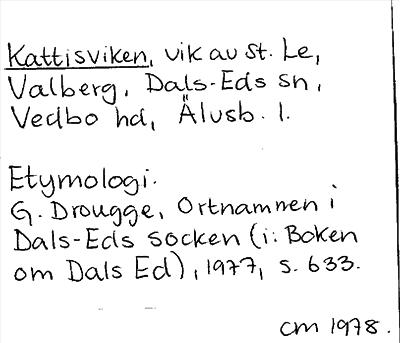 Kattisviken, vik av St. Le,
Valberg, Dals-Eds sn,
Vedbo hd, Älvsb. l.
Etymologi.
G. Drougge, Ortnamnen i
Dals-Eds socken (i: Boken
om Dals Ed), 1977, s. 633.
CM 1978.